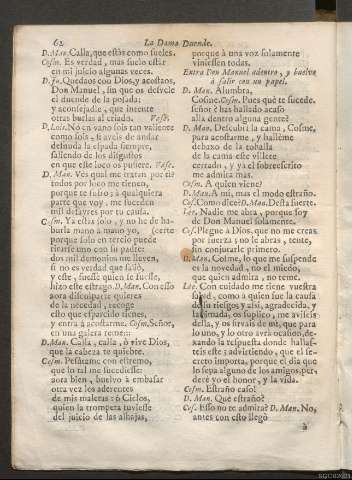 62
La Dama Duende.
D. Man. Calla, que estàs como sueles.
Cosm. Es verdad, mas suelo estàr
en mi juicio algunas veces.
D. Ju. Quedaos con Dios, y acostaos,
Don Manuel, sin que os desvele
el duende de la posada;
y aconsejadle, que intente
otras burlas al criado. Vase.
D. Luis. No en vano sois tan valiente
como sois, si aveis de andar
desnuda la espada siempre,
saliendo de los disgustos
en que este loco os pusiere. Vase.
D. Man. Ves qual me tratan por ti?
todos por loco me tienen,
porque te sufro; à qualquiera
parte que voy, me suceden
mil desayres por tu causa.
Cosm. Ya estás solo, y no he de hablarla
mano à mano yo,
porque solo en tercio puede
tirarse uno con su padre:
dos mil demonios me lleven,
si no es verdad que salió,
y este, fuesse quien se fuesse,
hizo este estrago. D. Man. Con esso
aora disculparte quieres
de la necedad, recoge
esto que esparcido tienes,
y entra à acostarme. Cosm. Señor,
en una galera remen:
D. Man. Calla, calla, ò vive Dios,
que la cabeza te quiebre.
Cosm. Pesàrame con estremo,
que lo tal me sucediesse:
aora bien, buelvo à embasar
otra vez los aderentes
de mis maletas: ò Cielos,
quien la trompeta tuviesse
del juicio de las alhajas,
porque à una voz solamente
viniessen todas.
Entra Don Manuel adentro, y buelve
à salir con un papel.
D. Man. Alumbra,
Cosme. Cosm. Pues què te sucede,
señor? has hallado acaso
allà dentro alguna gente?
D. Man. Descubrì la cama, Cosme,
para acostarme, y hallème
debaxo de la tohalla
de la cama este villete
cerrado, y ya el sobreescrito
me admira mas.
Cosm. A quien viene?
D. Man. A mì, mas el modo estraño.
Cos. Como dice? D. Man. Desta suerte.
Lee. Nadie me abra, porque soy
de Don Manuel solamente.
Cos. Plegue à Dios, que no me creas
por fuerza; no le abras, tente,
sin conjurarle primero.
D. Man. Cosme, lo que me suspende
es la novedad, no el miedo,
que quien admira, no teme.
Lee. Con cuidado me tiene vuestra
salud, como à quien fue la causa
de su riesgo; y assi, agradecida, y
lastimada, os suplico, me aviseis
della, y os sirvais de mì, que para
lo uno, y lo otro avrà ocasion, dexando
la respuesta donde hallasteis
este; advirtiendo, que el secreto
importa, porque el dia que
lo sepa alguno de los amigos, perderè
yo el honor, y la vida.
Cosm. Estraño caso!
D. Man. Què estraño?
Cos. Esso no te admira? D. Man. No,
antes con esto llegò
à